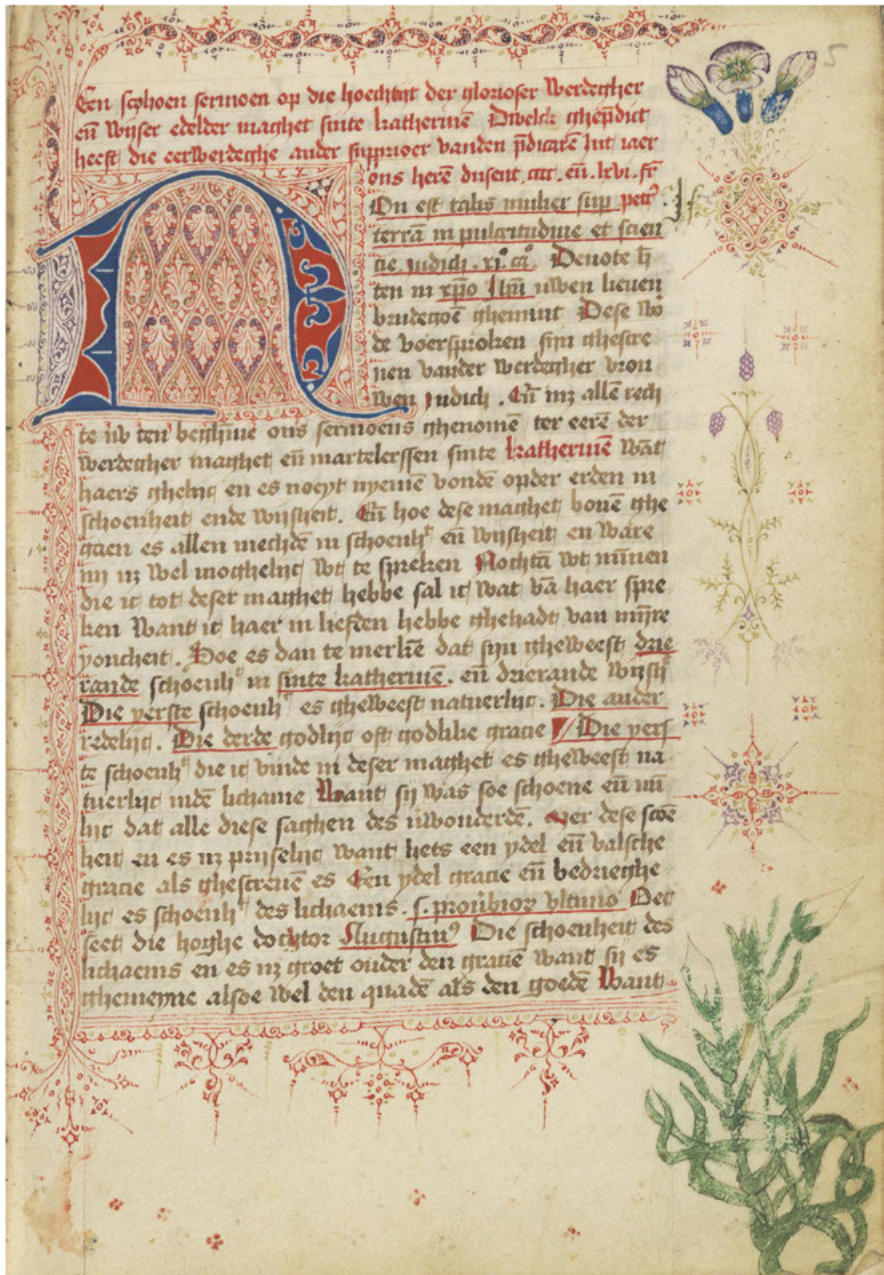 Een schoen sermoen op die hoechtijt der glorioser werdegher
eñ wijser edelder maghet sinte katherinē Dwelck ghep̄dict
heeft die eerwerdeghe ander supprioer vanden p̄dicarē Int iaer
ons herē dusent .cccc. eñ. lxvi.
Non est talis mulier sup̄
terrā in pulcritudine et scien
cie Judich .xi. cā. Devote
ten in xp̄o Jh̄u uwen lieuen
brudegoē ghemint Dese wo
de voersproken sijn ghescre
uen vander werdegher vrou
wen Judich . Eñ mz allē rech
te ist ten beghīne ons sermoens ghenomē ter eerē der
werdegher maghet eñ martelerssen sinte katherinē Wāt
haers ghelijc en es noeyt nyemē vondē opder erden in
schoenheit ende wijsheit. Eñ hoe dese maghet bouē ghe
gaen es allen mechdē in schoenh​t eñ wijsheit en ware
mj nz wel moghelijc wt te spreken Nochtā wt mīnen
die ic tot deser maghet hebbe sal ic wat vā haer spre
ken Want ic haer in liefden hebbe ghehadt van mijnre
yoncheit. Hoe es dan te merkē dat sijn gheweest drie
rande schoenh​t in sinte katherinē. eñ drierande wijsh​t
Die yerste schoenh​t es gheweest natuerlijc. Die ander
redelijc. Die derde godlijc oft godlike gracie Die yers
te schoenh​t die ic vinde in deser maghet es gheweest na
tuerlijc indē lichame Want sij was soe schoene eñ mī
lijc dat alle diese saghen des uwonderdē. Mer dese scoē
heit en es nz prijselijc want hets een ydel eñ valsche
gracie als ghescreuē es Een ydel gracie eñ bedrieghe
lijc es schoenh​t des lichaems. s. prouerbior vltimo Oec
seet die hoghe doctor Augustin⁹ Die schoenheit des
lichaems en es nz groet onder den graciē want sij es
ghemeyne alsoe wel den quadē als den goedē Want